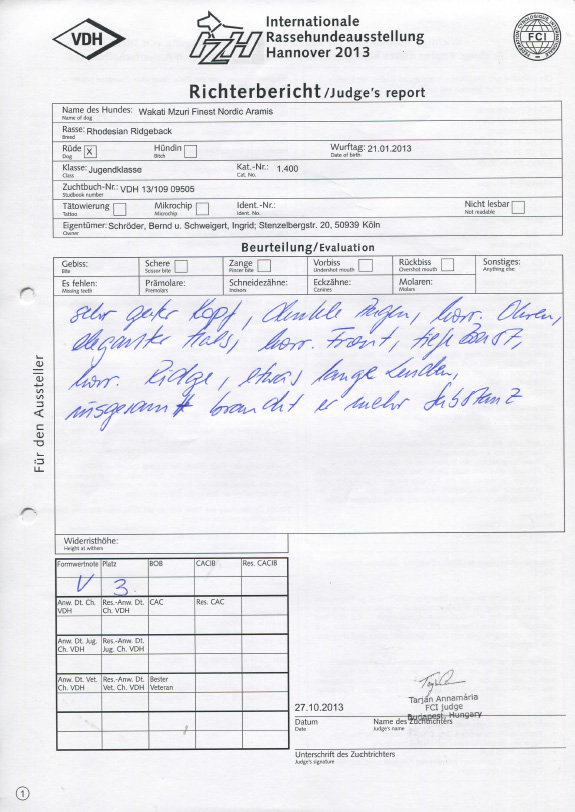 VDH
IZH
Internationale
Rassehundeausstellung
Hannover 2013
FEDERATION CYNOLOGIQUE INTERNATIONALE
FCI
Richterbericht/Judge's report
Name des Hundes: Wakati Mzuri Finest Nordic Aramis
Name of dog
Rasse: Rhodesian Ridgeback
Breed
Rüde X Hündin Wurftag: 21.01.2013
Dog Bitch Date of birth
Klasse: Jugendklasse Kat.-Nr.: 1.400
Class Cat. No.
Zuchtbuch-Nr.: VDH 13/109 09505
Studbook number
Tätowierung Mikrochip Ident.-Nr.: Nicht lesbar
Tattoo Microchip Ident. No. Not readable
Eigentümer: Schröder, Bernd u. Schweigert, Ingrid; Stenzelbergstr. 20, 50939 Köln
Owner
Beurteilung/Evaluation
Gebiss: Schere Zange Vorbiss Rückbiss Sonstiges:
Bite Scissor bite Pincer bite Undershot mouth Overshot mouth Anything else
Es fehlen: Prämolare: Schneidezähne: Eckzähne: Molaren:
Missing teeth Premolars Incisors Canines Molars
sehr guter Kopf, dunkle Augen, korr. Ohren,
eleganter Hals, korr. Front, tiefe Brust,
korr. Ridge, etwas lange Lenden,
insgesamt braucht er mehr Substanz
Für den Aussteller
Widerristhöhe:
Height at withers
Formwertnote Platz BOB CACIB Res. CACIB
V 3
Anw. Dt. Ch. Res.-Anw. Dt. CAC Res. CAC
VDH Ch. VDH
Anw. Dt. Jug. Res.-Anw. Dt.
Ch. VDH Jug. Ch. VDH
Anw. Dt. Vet. Res.-Anw. Dt. Bester
Ch. VDH Vet. Ch. VDH Veteran
Tarján Annamária
FCI Judge
Budapest, Hungary
27.10.2013
Datum Name des Zuchtrichters
Date Judge's name
Unterschrift des Zuchtrichters
Judge's signature
1